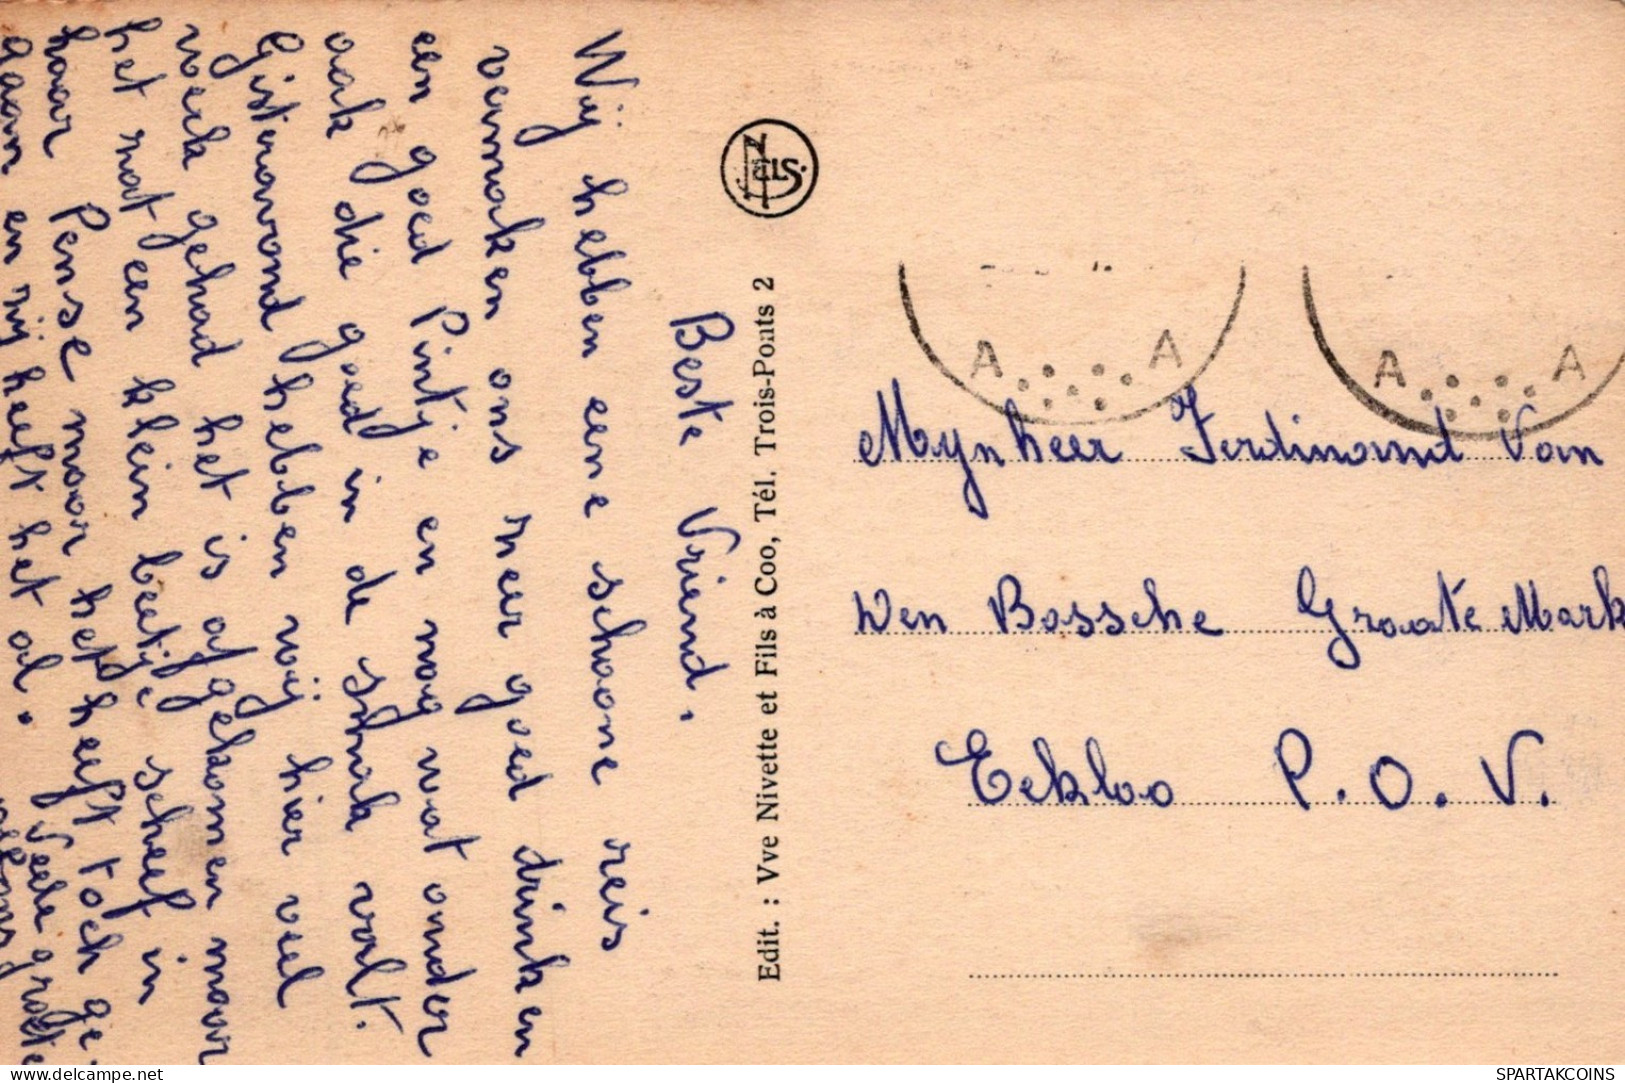 Beste Vriend.
Wij hebben eene schoone reis
vermaken ons neer goed drinken
een goed Pintje en nog wat onder
oak die goed in de smak valt.
Gisteravond hebben wij hier veel
werk gehad het is afgekomen maar
het nat een klein beetje scheef in
haar Pense maar het heeft toch ge-
gaan en rij heeft het al.
Veele groete
Edit. : Vve Nivette et Fils à Coo, Tél. Trois-Ponts 2
NELS
A A
A A
Mynheer Ferdinand Van
Den Bossche Groote Mark
Eekloo P. O. V.
delcampe.net
SPARTAKCOINS